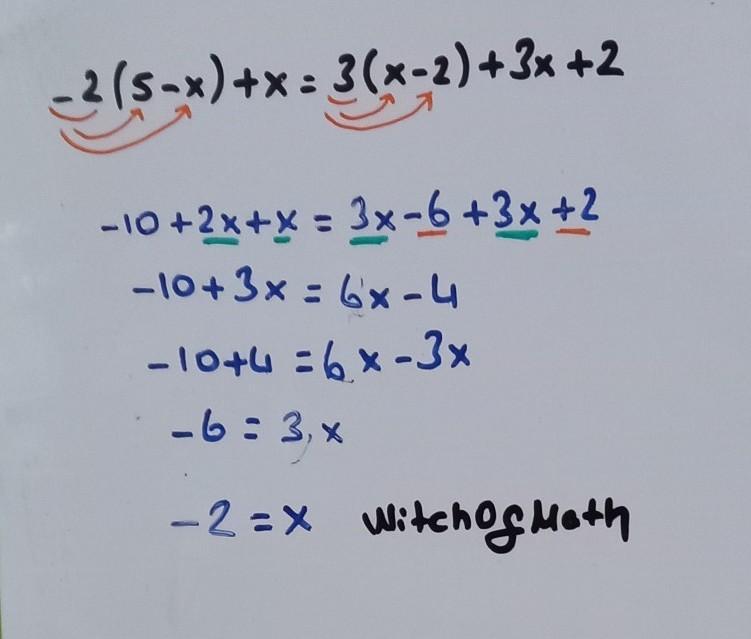 -2(5-x)+x=3(x-2)+3x+2
-10+2x+x=3x-6+3x+2
-10+3x=6x-4
-10+4=6x-3x
-6=3x
-2=x WitchOfMath